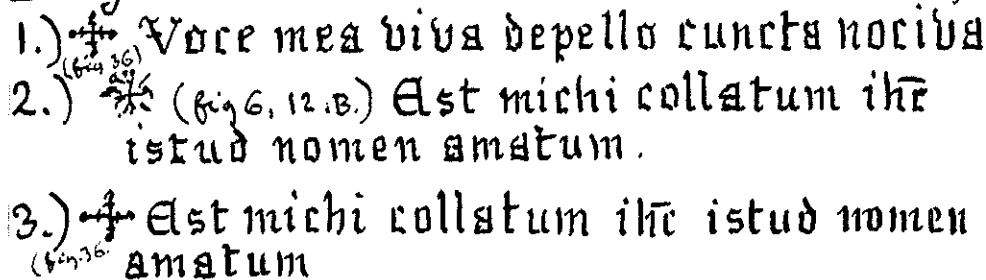 1.) Voce mea viva depello cuncta nociva
(fig 36)
2.) (fig 6, 12.B.) Est michi collatum ihc̄
istud nomen amatum.
3.) Est michi collatum ihc̄ istud nomen
(fig. 36.
amatum